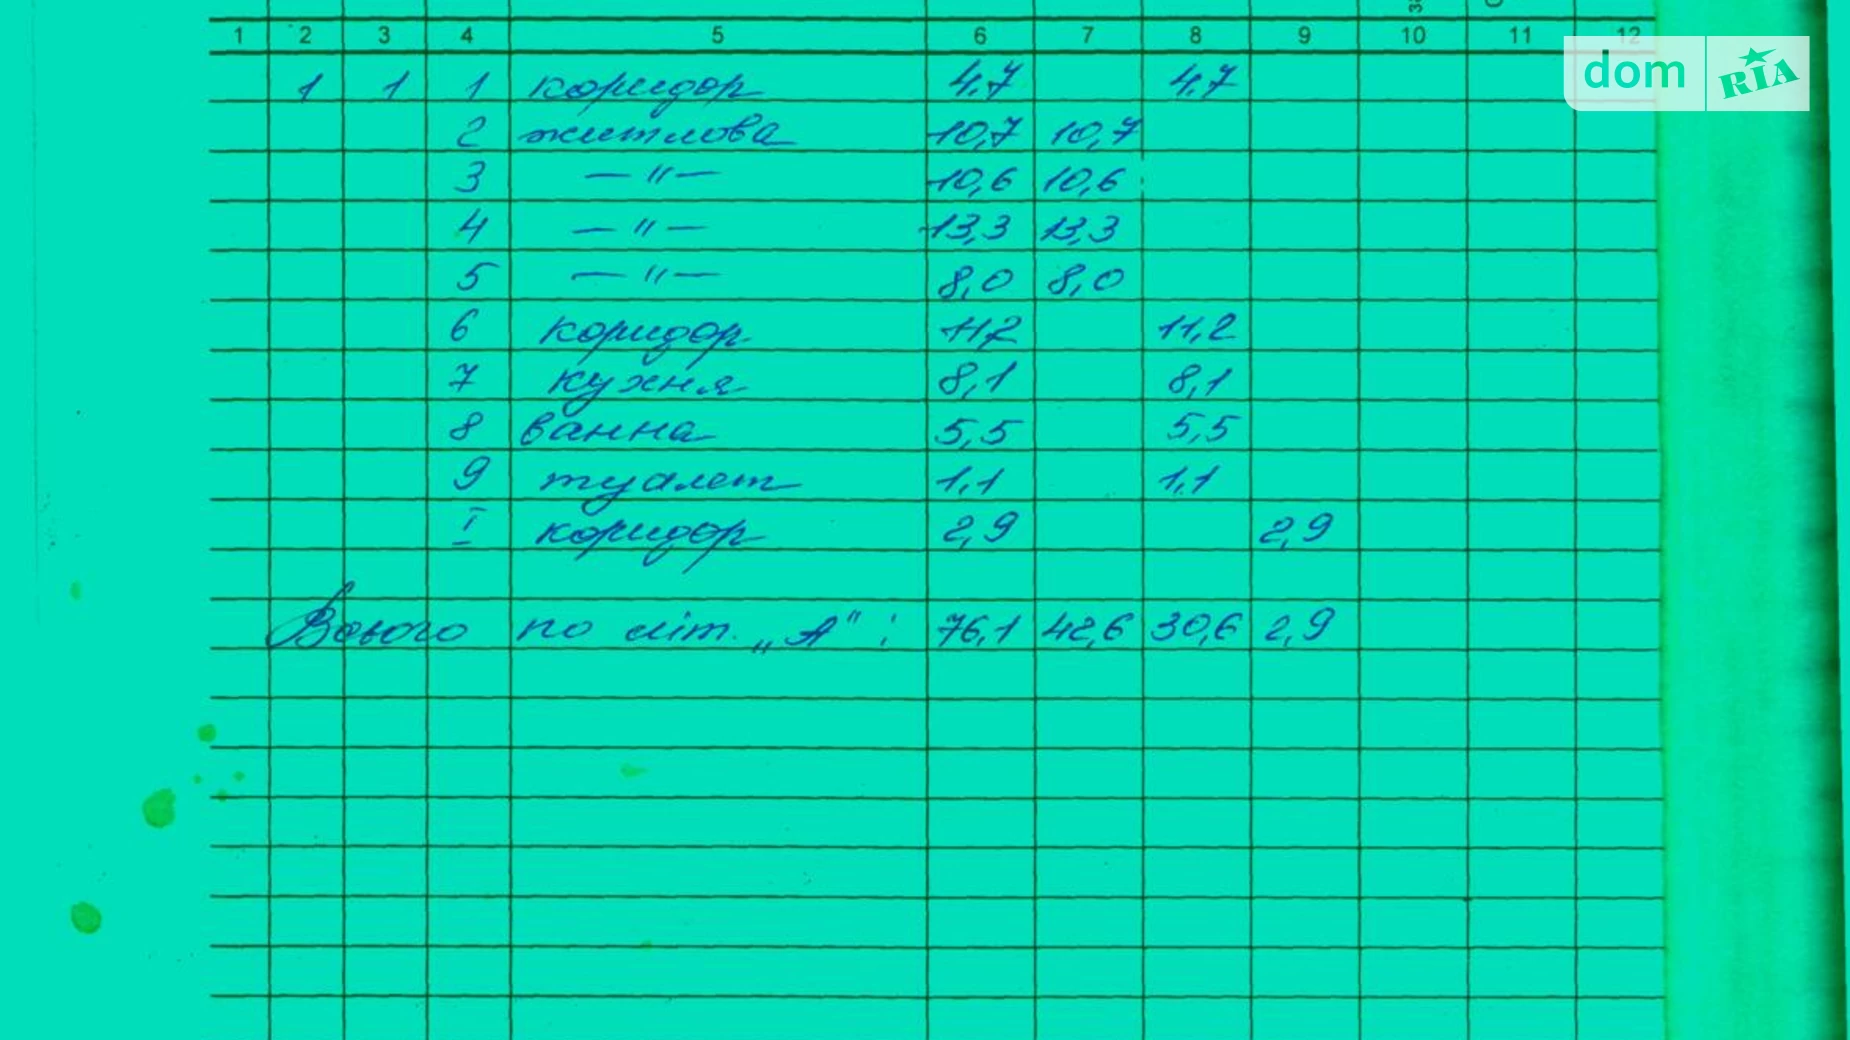 1 2 3 4 5 6 7 8 9 10 11 12
dom RIA
1 1 1 коридор 4,7 4,7
2 житлова 10,7 10,7
3 —"— 10,6 10,6
4 —"— 13,3 13,3
5 —"— 8,0 8,0
6 коридор 11,2 11,2
7 кухня 8,1 8,1
8 ванна 5,5 5,5
9 туалет 1,1 1,1
I коридор 2,9 2,9
Всього по літ. „А" : 76,1 42,6 30,6 2,9